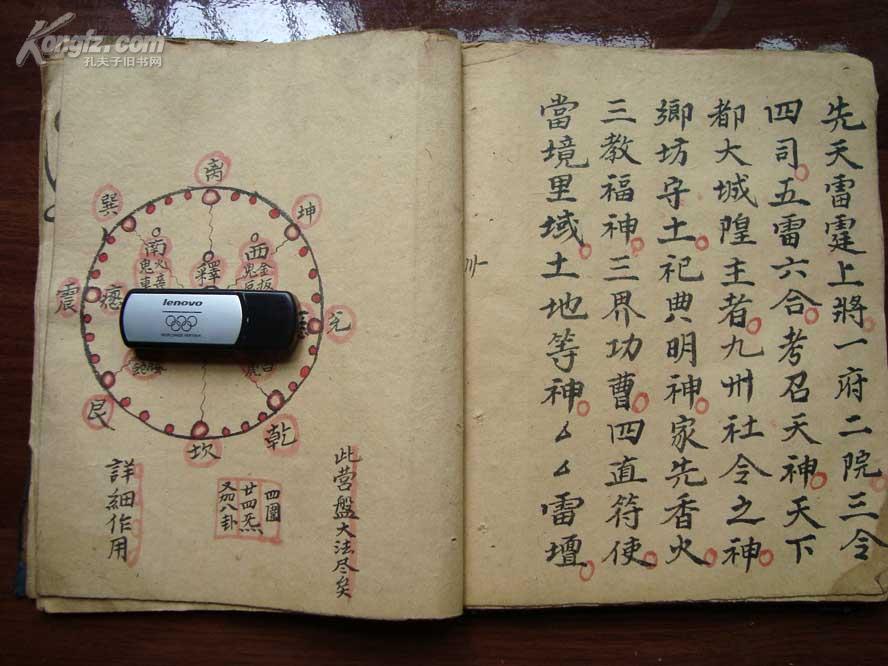 先天雷霆上將一府二院三令
四司五雷六合考召天神天下
都大城隍主者九州社令之神
鄉坊守土祀典明神家先香火
三教福神三界功曹四直符使
當境里域土地等神厶厶雷壇
离
坤
兌
乾
坎
艮
震
巽
南
西
釋
此营盤大法尽矣
四圍
廿四炁
又加八卦
詳細作用
lenovo
Kongfz.com
孔夫子旧书网